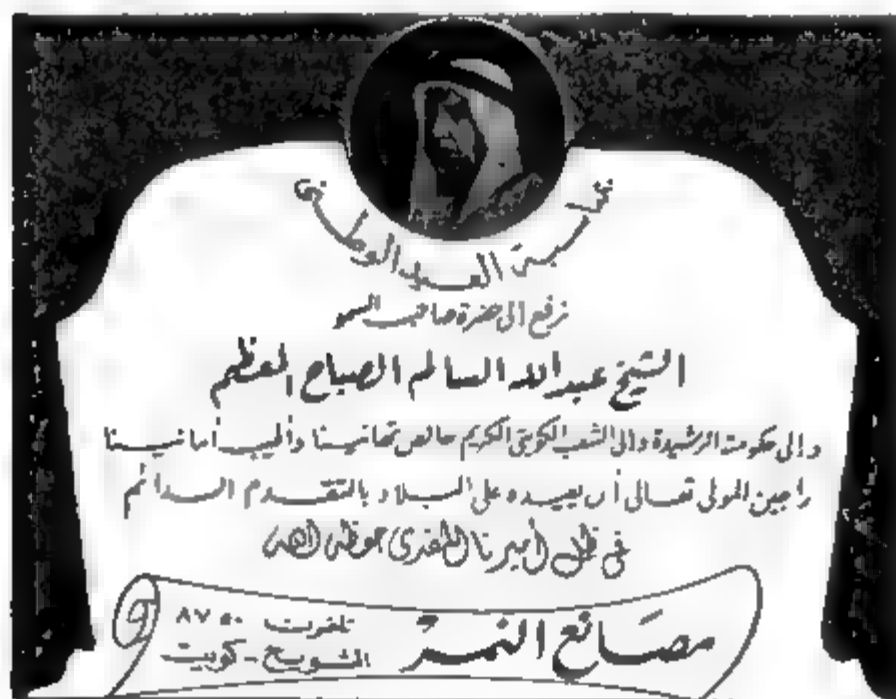 بمناسبة العيد الوطني
نرفع الى حضرة صاحب السمو
الشيخ عبد الله السالم الصباح المعظم
والى حكومته الرشيدة والى الشعب الكويتي الكريم خالص تهانينا وأطيب أمانينا
راجين المولى تعالى أن يعيده على البلاد بالتقدم الدائم
في ظل أميرنا المفدى حفظه الله
مصانع النمر
تلفون ٨٧٥٠
الشويخ - كويت